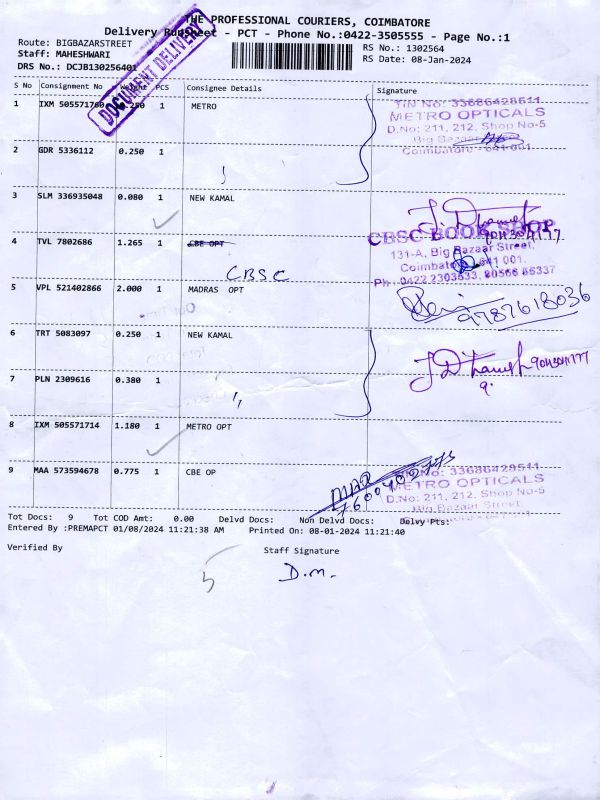 THE PROFESSIONAL COURIERS, COIMBATORE
Delivery RunSheet - PCT - Phone No.:0422-3505555 - Page No.:1
Route: BIGBAZARSTREET
RS No.: 1302564
Staff: MAHESHWARI
RS Date: 08-Jan-2024
DRS No.: DCJB130256401
DOCUMENT DELIVERY
S No Consignment No Weight PCS Consignee Details Signature
1 IXM 505571760 0.250 1 METRO
TIN No: 33686429511
METRO OPTICALS
D.No: 211, 212, Shop No-5
Big Bazaar Street
Coimbatore - 641 001
2 GDR 5336112 0.250 1
3 SLM 336935048 0.080 1 NEW KAMAL
4 TVL 7802686 1.265 1 CBE OPT
CBSC
CBSC BOOK SHOP
131-A, Big Bazaar Street,
Coimbatore 641 001.
Ph : 0422 2303633, 80566 56337
5 VPL 521402866 2.000 1 MADRAS OPT
9787618036
6 TRT 5083097 0.250 1 NEW KAMAL
7 PLN 2309616 0.380 1
8 IXM 505571714 1.180 1 METRO OPT
9 MAA 573594678 0.775 1 CBE OP
No: 33686429511
METRO OPTICALS
D.No: 211, 212, Shop No-5
Big Bazaar Street
Tot Docs: 9 Tot COD Amt: 0.00 Delvd Docs: Non Delvd Docs: Delvy Pts:
Entered By :PREMAPCT 01/08/2024 11:21:38 AM Printed On: 08-01-2024 11:21:40
Verified By Staff Signature
5 D.M.